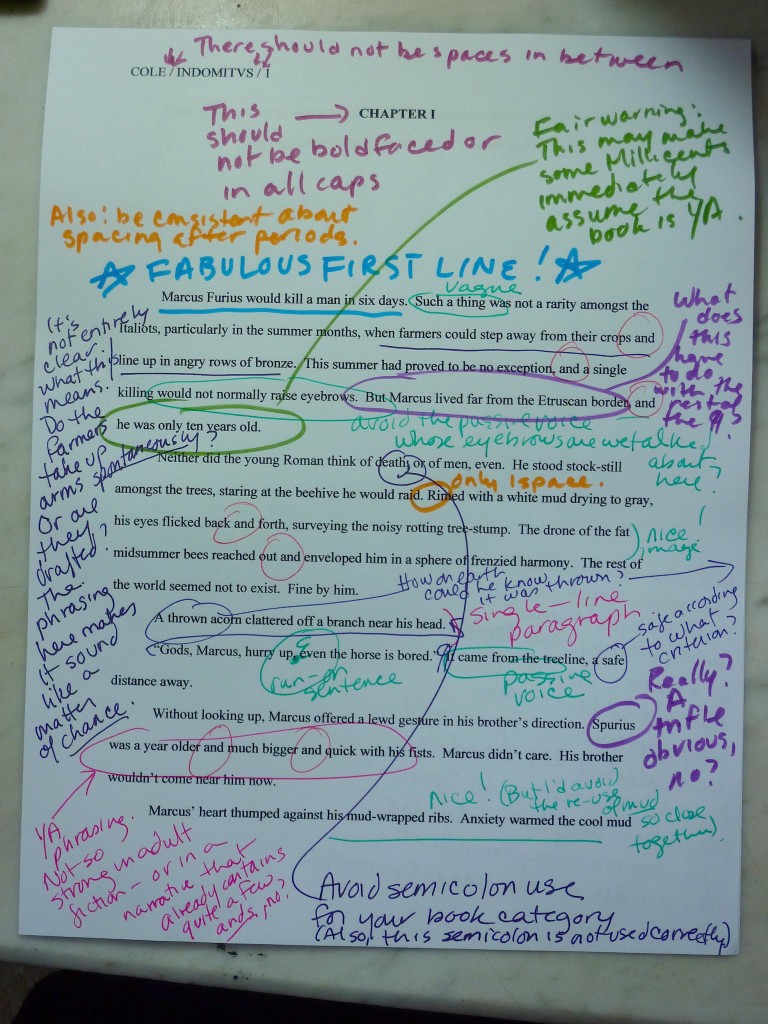 There should not be spaces in between
COLE / INDOMITVS / I
This
should
not be boldfaced or
in all caps
CHAPTER I
Fair warning:
This may make
some Millicents
immediately
assume the
book is YA.
Also: be consistent about
spacing after periods.
FABULOUS FIRST LINE!
vague
Marcus Furius would kill a man in six days. Such a thing was not a rarity amongst the
Italiots, particularly in the summer months, when farmers could step away from their crops and
line up in angry rows of bronze. This summer had proved to be no exception, and a single
killing would not normally raise eyebrows. But Marcus lived far from the Etruscan border, and
he was only ten years old.
What
does
this
have
to do
with the
rest of
the ¶?
avoid the passive voice
whose eyebrows are we talking
about
here?
It's
not entirely
clear
what this
means.
Do the
farmers
take up
arms spontaneously?
Or are
they
drafted?
The
phrasing
here makes
it sound
like a
matter
of chance.
Neither did the young Roman think of death; or of men, even. He stood stock-still
only 1 space.
amongst the trees, staring at the beehive he would raid. Rimed with a white mud drying to gray,
his eyes flicked back and forth, surveying the noisy rotting tree-stump. The drone of the fat
midsummer bees reached out and enveloped him in a sphere of frenzied harmony. The rest of
the world seemed not to exist. Fine by him.
nice
image!
How on earth
could he know
it was thrown?
A thrown acorn clattered off a branch near his head.
Single-line
paragraph
"Gods, Marcus, hurry up, even the horse is bored." It came from the treeline, a safe
distance away.
run-on
sentence
passive
voice
safe according
to what
criterion?
Really?
A
trifle
obvious,
no?
Without looking up, Marcus offered a lewd gesture in his brother's direction. Spurius
was a year older and much bigger and quick with his fists. Marcus didn't care. His brother
wouldn't come near him now.
Nice! (But I'd avoid
the re-use
of mud
so close
together)
Marcus' heart thumped against his mud-wrapped ribs. Anxiety warmed the cool mud
YA
phrasing.
Not so
strong in adult
fiction – or in a
narrative that
already contains
quite a few
ands, no?
Avoid semicolon use
for your book category
(Also, this semicolon is not used correctly)